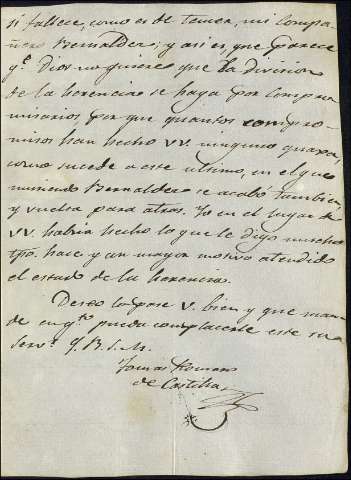 si fallece, como es de temer, mi Compa-
ñero Bernaldez; y asi es, que parece
qe. Dios no quiere que la division
de la herencia se haga por Compro
misarios, por que quantos compro-
misos han hecho VV. ninguno quaxa,
como sucede a este ultimo, en el que
muriendo Bernaldez se acabó tambien,
y vuelta para atras. Yo en el lugar de
VV. habria hecho lo que le digo mucho
tpo. hace, y con mayor motivo atendido
el estado de la herencia.
Deseo lo pase V. bien y que man
de en qto. pueda complacerle este su
Servr. Q. B. S. M.
Tomas Romano
de Castilla